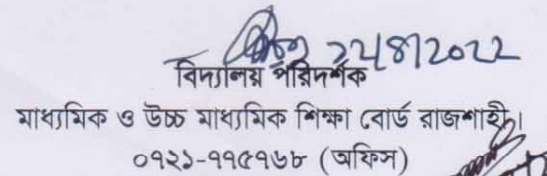 ২১/৪/2022
বিদ্যালয় পরিদর্শক
মাধ্যমিক ও উচ্চ মাধ্যমিক শিক্ষা বোর্ড রাজশাহী।
০৭২১-৭৭৫৭৬৮ (অফিস)